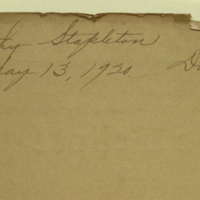 hy Stapleton
ay 13, 1920
D